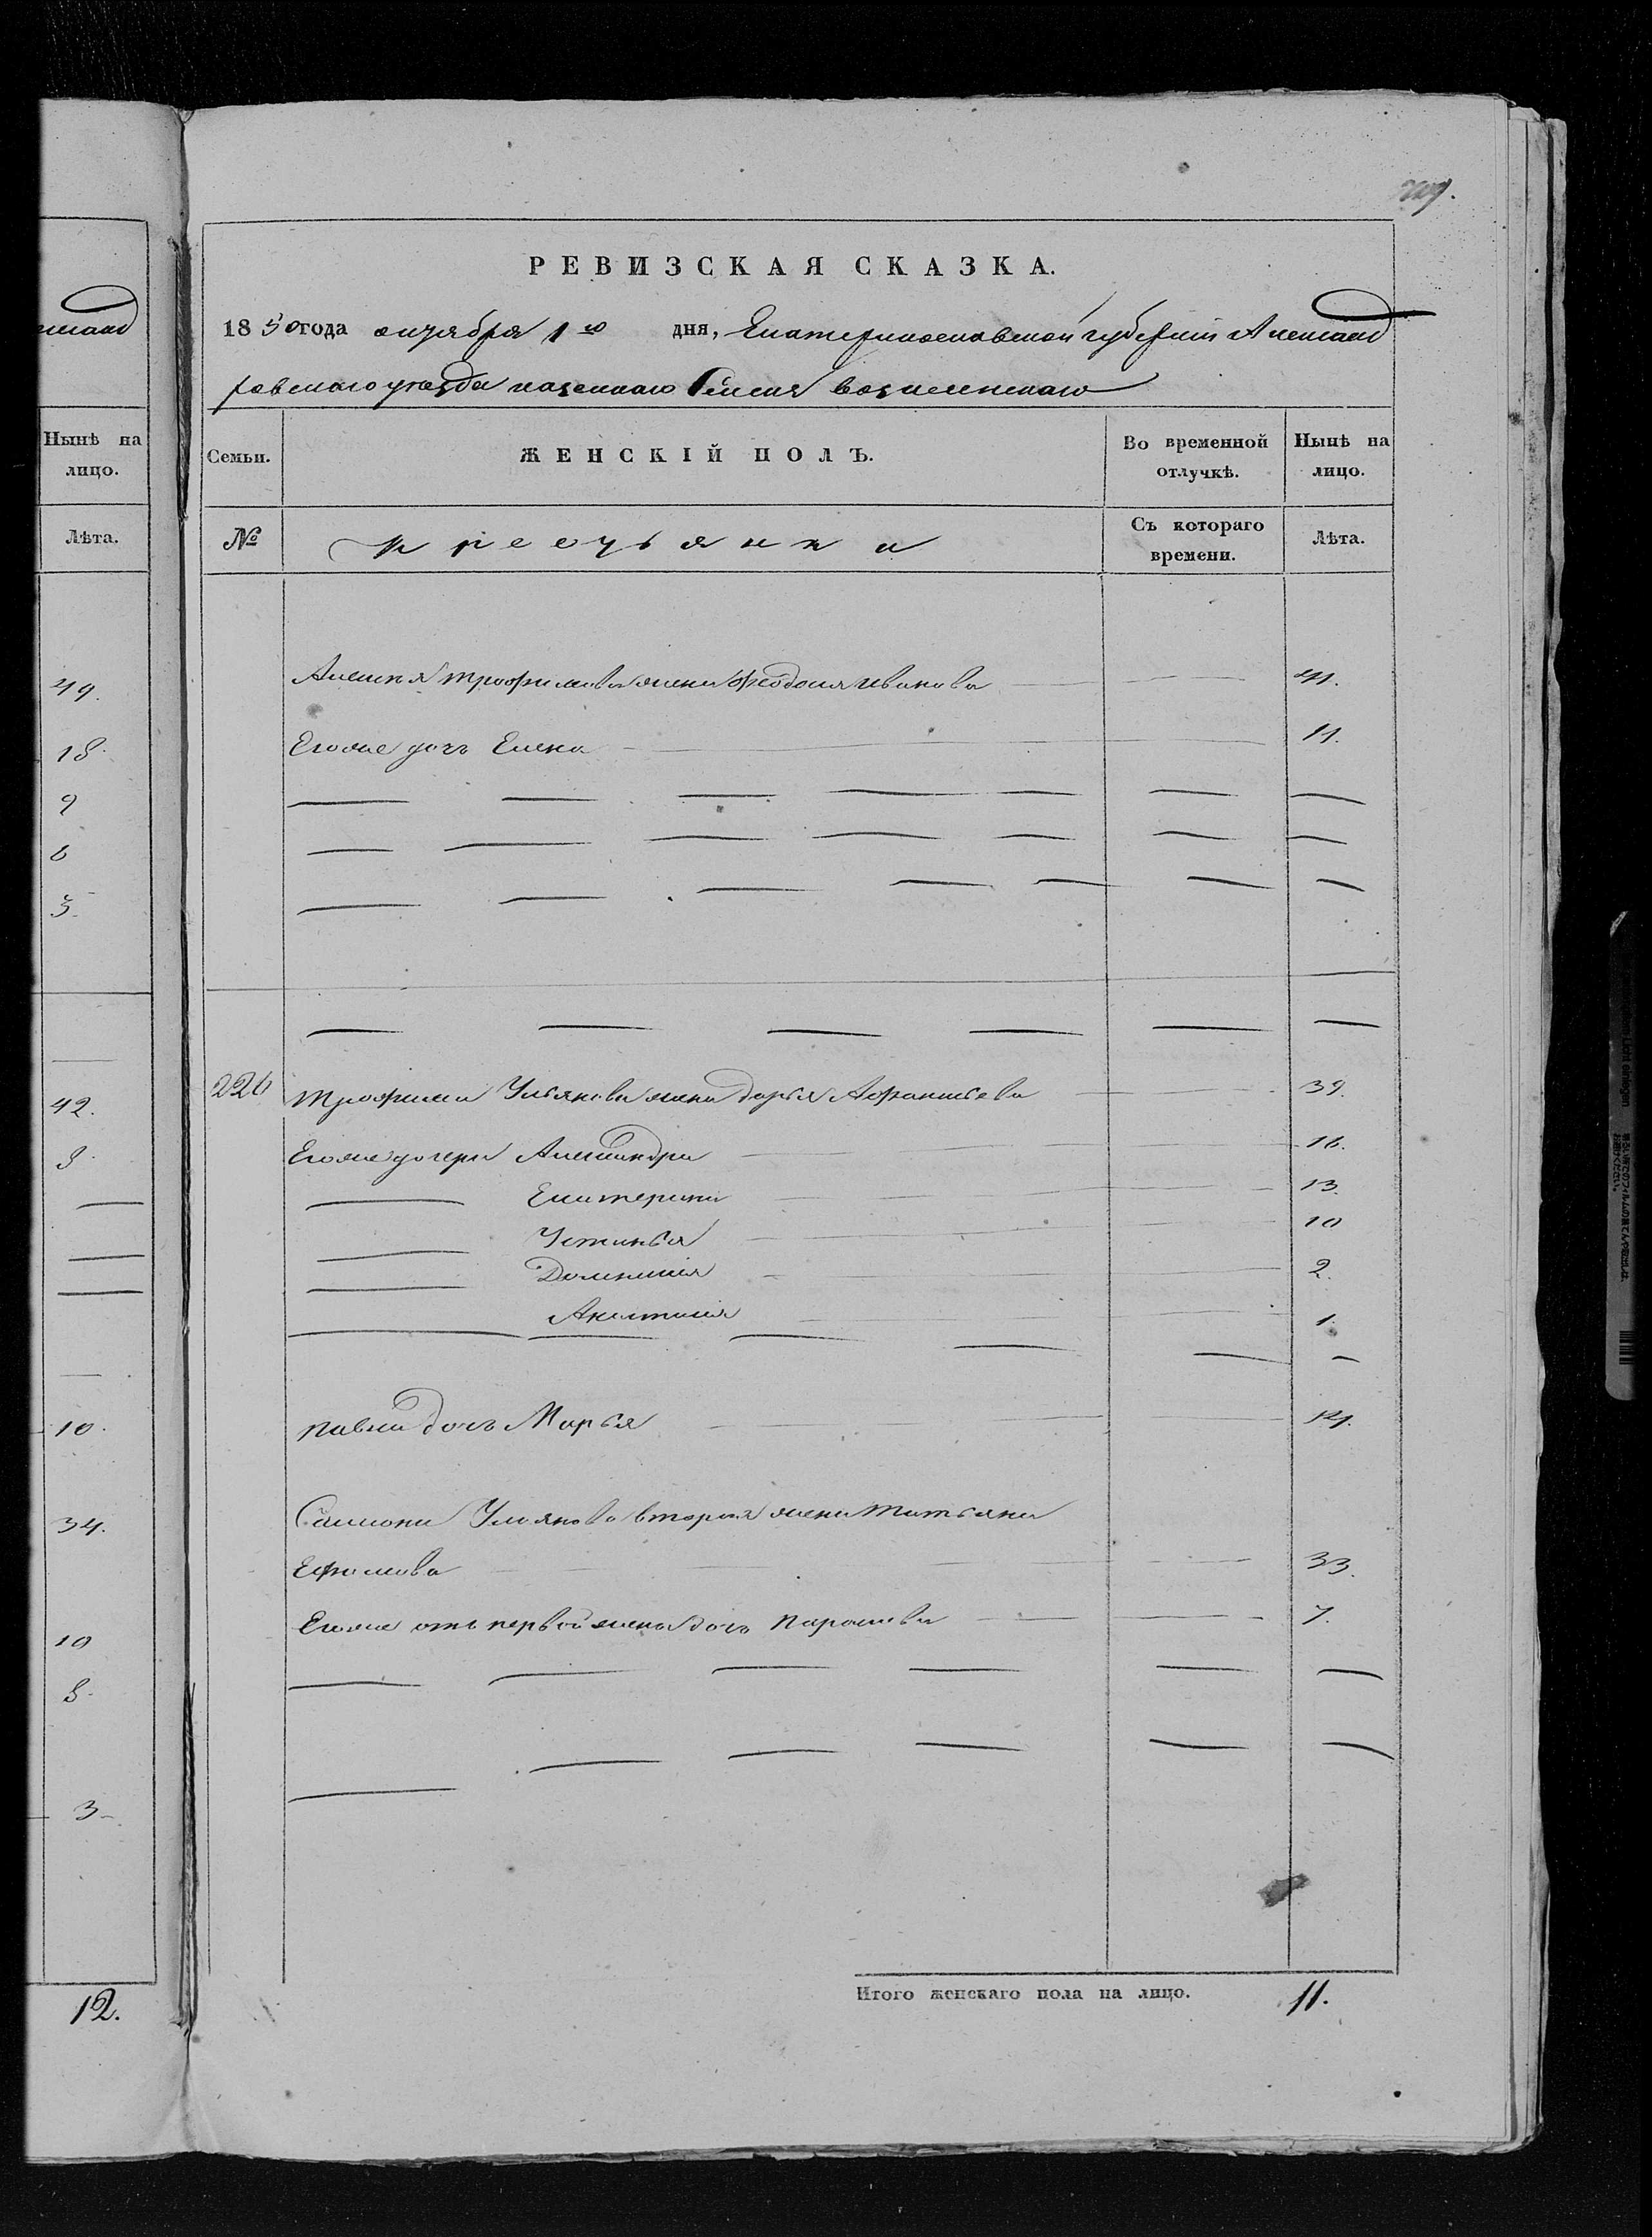 209.
РЕВИЗСКАЯ СКАЗКА.
1850 года октября 1го дня, Екатеринославской губернии Александ
ровскаго уезда казеннаго селения вознесенскаго
Нынѣ на лицо.
Лѣта.
49.
18.
9
6
3.
42.
8.
10.
34.
10
8.
3
12.
Семьи. ЖЕНСКІЙ ПОЛЪ. Во временной отлучкѣ. Нынѣ на лицо.
№ крестьянки Съ котораго времени. Лѣта.
Алексея трофимова жена Феодосия иванова 41.
Егоже дочь Елена 11.
226 трофима Ульянова жена дарья Афанасьева 39.
Егоже дочери Александра 16.
Екатерина 13.
Устинья 10
Домникия 2.
Анастасия 1.
павла дочь Марья 14.
Самсона Ульянова вторая жена Татьяна
Ефимова 33.
Егоже отъ первой жены дочь парасковья 7.
Итого женскаго пола на лицо. 11.